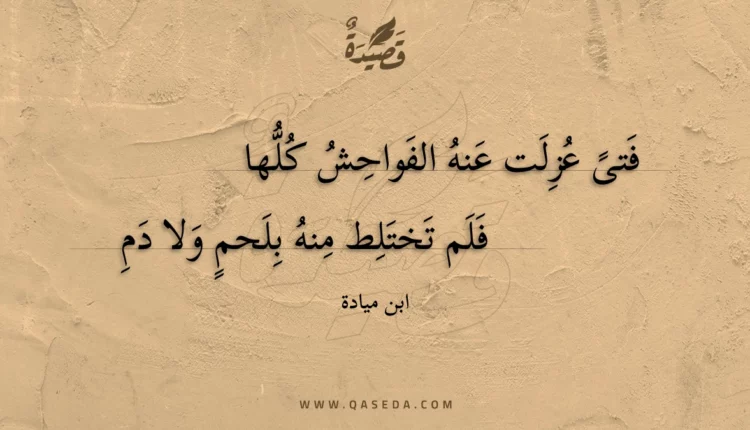 قَصِيدَةٌ
فَتىً عُزِلَت عَنهُ الفَواحِشُ كُلُّها
فَلَم تَختَلِط مِنهُ بِلَحمٍ وَلا دَمِ
ابن ميادة
WWW.QASEDA.COM